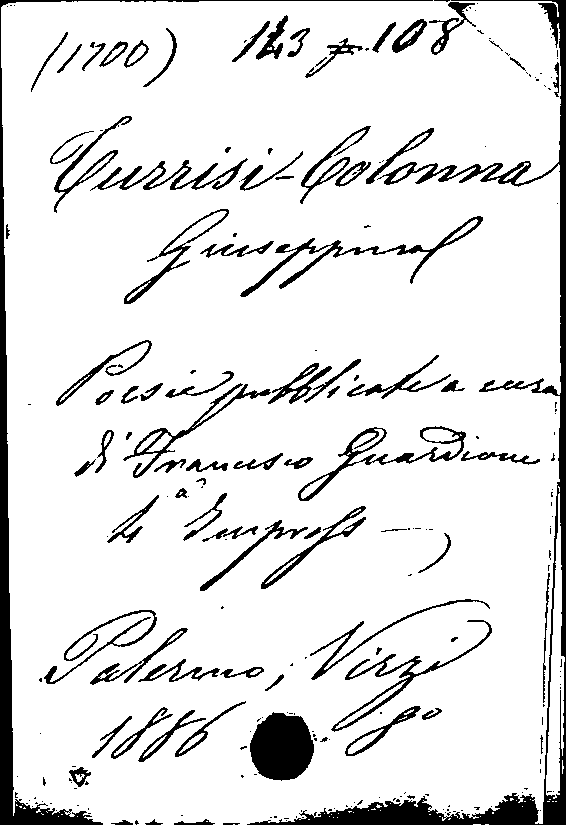 (1700) 143 F 108
Turrisi-Colonna
Giuseppina
Poesie pubblicate a cura
di Francesco Guardione
4ª Impress
Palermo, Virzi
1886 8º